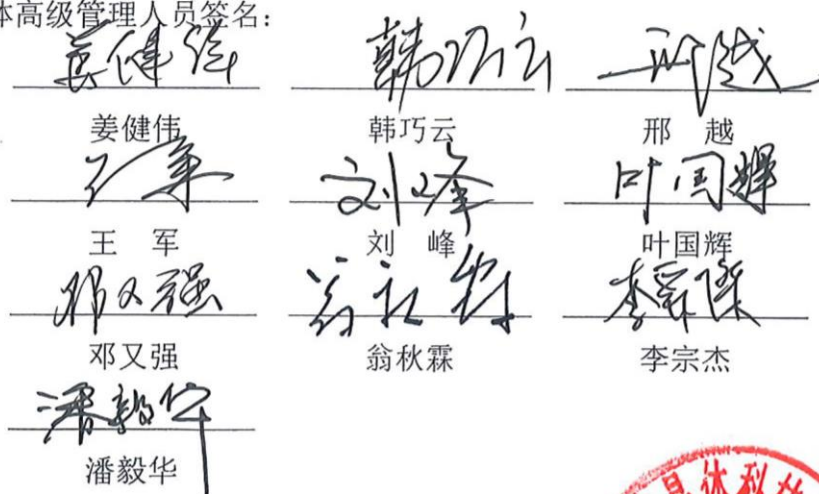 体高级管理人员签名：
姜健伟 韩巧云 邢越
姜健伟 韩巧云 邢 越
王军 刘峰 叶国辉
王 军 刘 峰 叶国辉
邓又强 翁秋霖
邓又强 翁秋霖 李宗杰
潘毅华
潘毅华
晶体科技